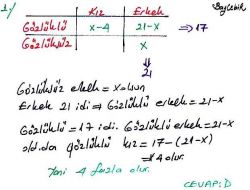 2/
Kız Erkek
Gözlüklü x-4 21-x ⇒ 17
Gözlüksüz x
⇓
21
Gözlüksüz erkek = x olsun
Erkek 21 idi ⇒ Gözlüklü erkek = 21-x
Gözlüklü = 17 idi. Gözlüklü erkek = 21-x
old.dan gözlüklü kız = 17-(21-x)
= x-4 olur.
Yani 4 fazla olur.
CEVAP: D